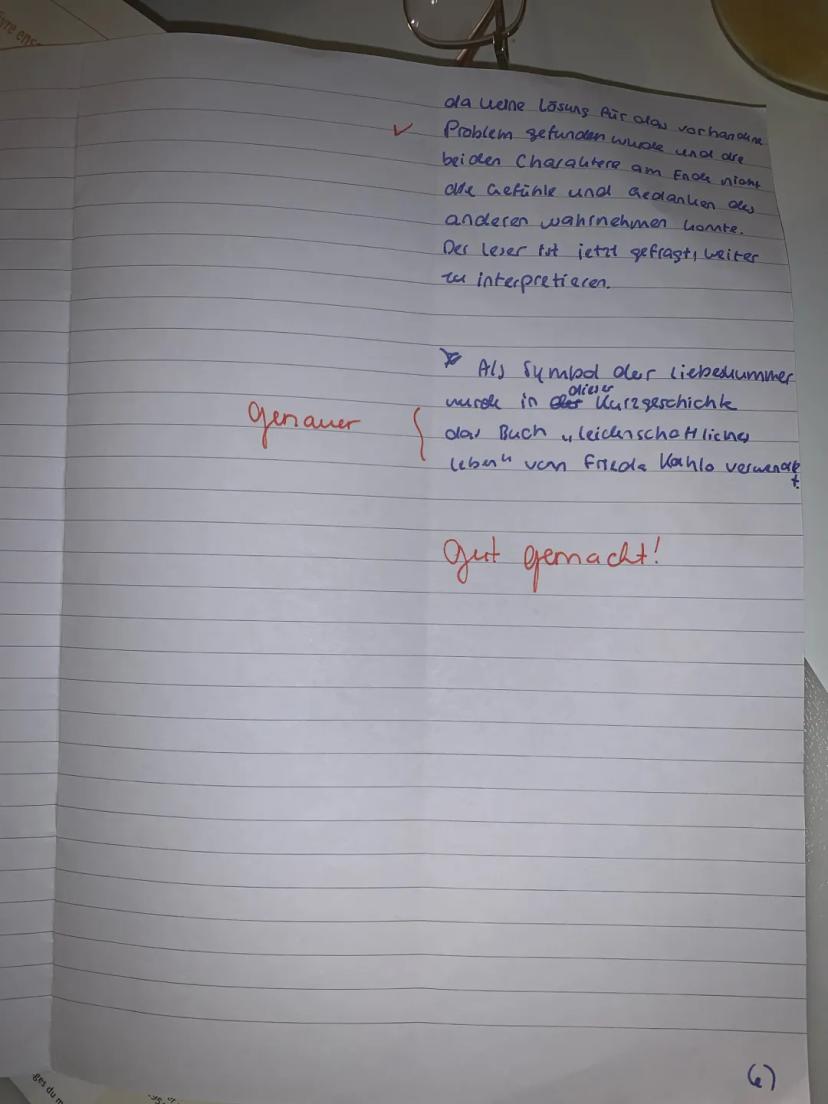 da keine Lösung für das vorhandene
✓ Problem gefunden wurde und die
beiden Charaktere am Ende nicht
die Gefühle und Gedanken des
anderen wahrnehmen konnte.
Der Leser ist jetzt gefragt, weiter
zu interpretieren.
Als Symbol der Liebeskummer
wurde in dieser Kurzgeschichte
genauer
das Buch „leidenschaftliches
Leben" von Frieda Kahlo verwendet.
gut gemacht!
6)